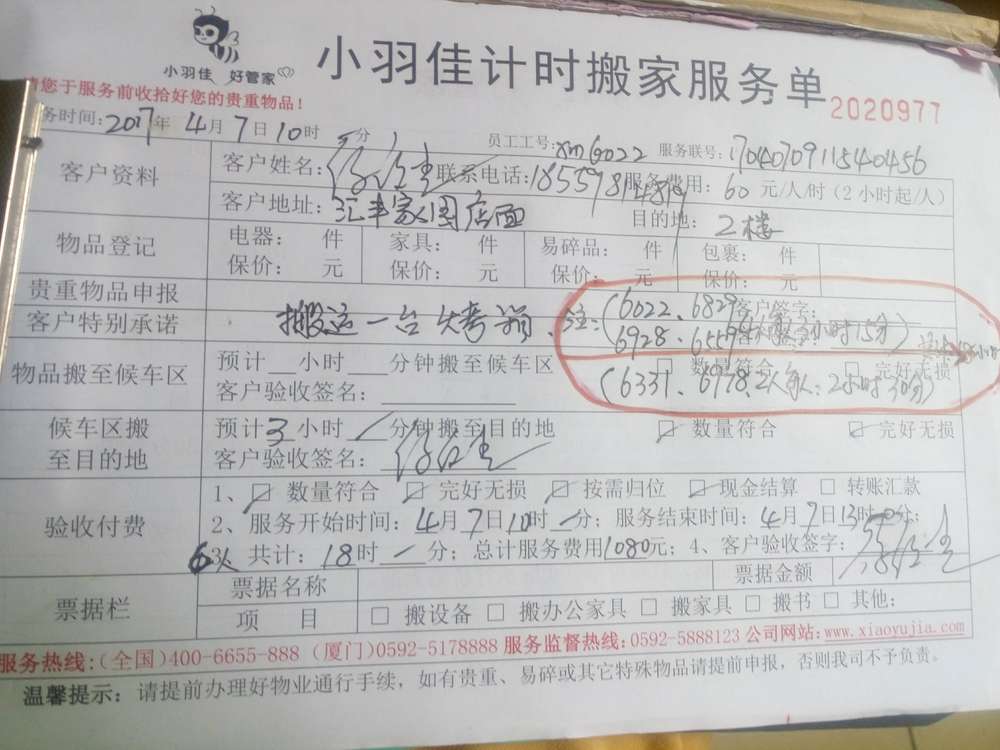 小羽佳 好管家
小羽佳计时搬家服务单
2020977
请您于服务前收拾好您的贵重物品！
务时间：2017年4月7日10时 分
员工工号：xm6022 服务联号：170407091154 0456
客户资料
客户姓名： 联系电话：18559 服务费用：60元/人/时（2小时起/人）
客户地址：汇丰家园店面 目的地：2楼
物品登记
电器： 件 家具： 件 易碎品： 件 包裹： 件
保价： 元 保价： 元 保价： 元 保价： 元
贵重物品申报
客户特别承诺
搬运一台大烤箱、注：（6022、6829 客户签字：
6928、6559 小时15分）
物品搬至候车区
预计 小时 分钟搬至候车区 数量符合 完好无损
客户验收签名：
（6331、6178、2人 ：2小时30分）
候车区搬至目的地
预计3小时 分钟搬至目的地 数量符合 完好无损
客户验收签名：
验收付费
1、 数量符合 完好无损 按需归位 现金结算 转账汇款
2、服务开始时间：4月7日10时 分；服务结束时间：4月7日13时 分；
6人 共计：18时 分；总计服务费用1080元；4、客户验收签字：
票据栏
票据名称 票据金额
项 目 搬设备 搬办公家具 搬家具 搬书 其他：
服务热线：（全国）400-6655-888（厦门）0592-5178888 服务监督热线：0592-5888123 公司网站：www.xiaoyujia.com
温馨提示：请提前办理好物业通行手续，如有贵重、易碎或其它特殊物品请提前申报，否则我司不予负责。